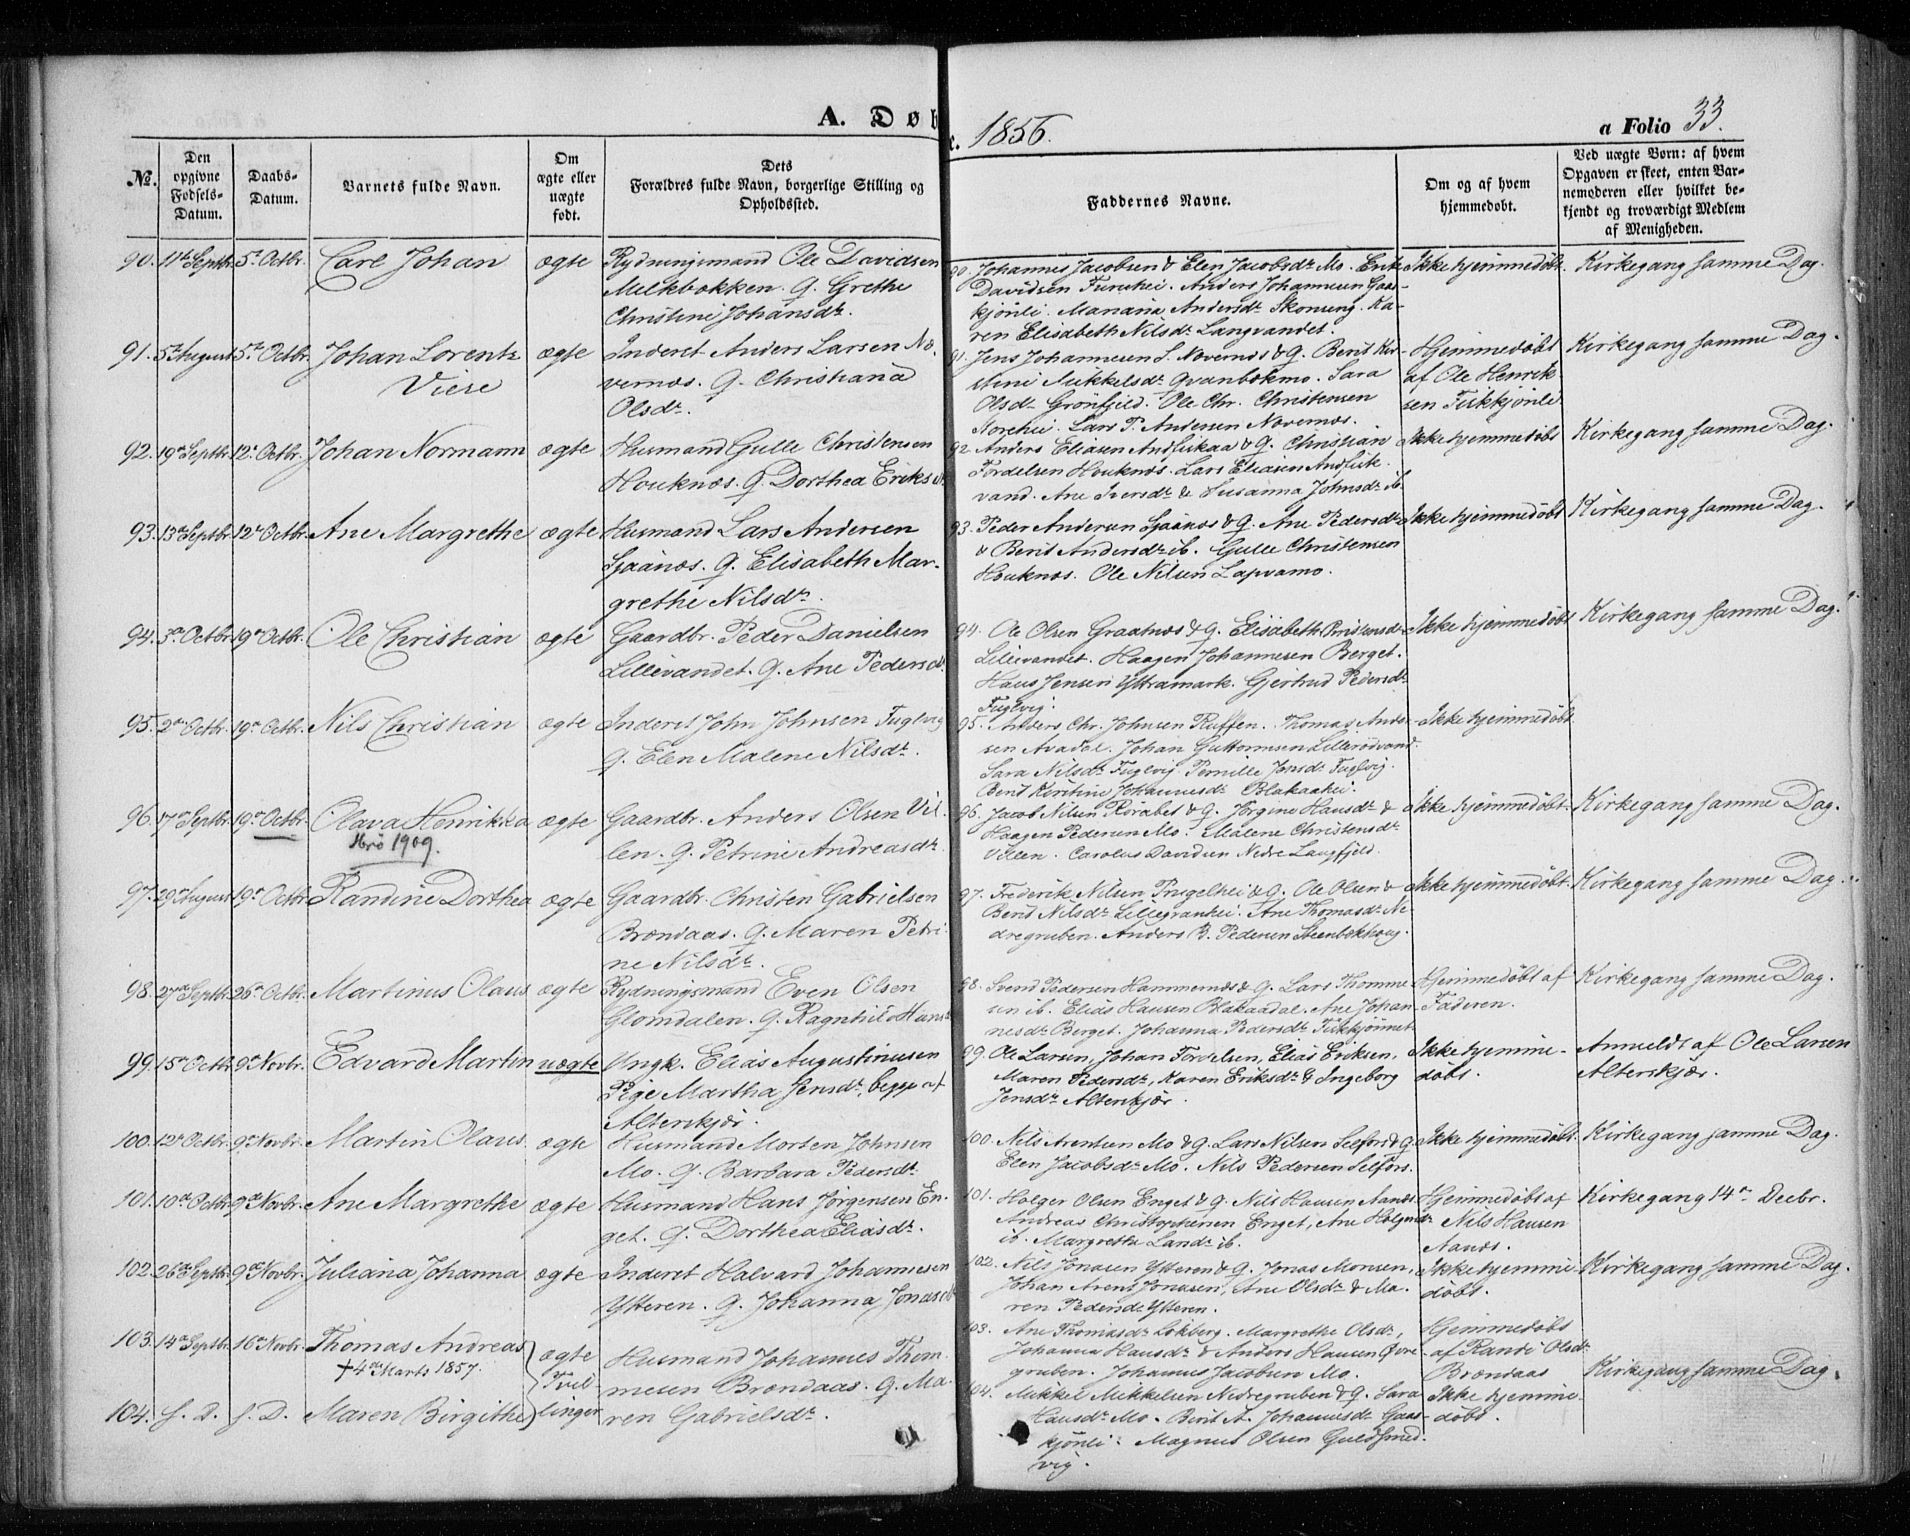 A. Døb
1856.
a Folio 33.
No.
Den opgivne Fødsels-Datum.
Daabs-Datum.
Barnets fulde Navn.
Om ægte eller uægte født.
Dets Forældres fulde Navn, borgerlige Stilling og Opholdssted.
Faddernes Navne.
Om og af hvem hjemmedøbt.
Ved uægte Børn: af hvem Opgaven er skeet, enten Barnemoderen eller hvilket bekjendt og troværdigt Medlem af Menigheden.
90. 11te Septbr. 5te Octbr. Carl Johan ægte Rydningsmand Ole Davidsen
Melkbækken. G. Grethe
Christine Johansdr.
90. Johannes Jacobsen & Elen Jacobsdr Mo. Erik
Davidsen Furuhei. Anders Johannesen Gaas-
kjønli. Mariana Andersdr Skonseng. Ka-
ren Elisabeth Nilsdr Langvandet.
Ikke hjemmedøbt. Kirkegang samme Dag.
91. 5te August 5te Octbr. Johan Lorents
Viere
ægte Inderst Anders Larsen Næ-
vernæs. G. Christiana
Olsdr.
91. Jens Johannesen S. Nævernæs & G. Berit Kir-
stine Mikkelsdr Qvanbækmo. Sara
Olsdr Grønfjeld. Ole Chr. Christensen
Storehei. Lars P. Andersen Nævernæs.
Hjemmedøbt
af Ole Henrik-
sen Fiskkjønli
Kirkegang samme Dag.
92. 19de Septbr. 12te Octbr. Johan Normann ægte Husmand Gulle Christensen
Houknæs. G. Dorthea Eriksdr
92. Anders Eliasen Andfiskaa & G. Christian
Tordelsen Houknæs. Lars Eliasen Andfisk-
vand. Ane Iversdr & Susanna Johnsdr ib.
Ikke hjemmedøbt Kirkegang samme Dag.
93. 13de Septbr 12te Octbr. Ane Margrethe ægte Husmand Lars Andersen
Sjaanæs. G. Elisabeth Mar-
grethe Nilsdr.
93. Peder Andersen Sjaanæs & G. Ane Pedersdr
& Berit Andersdr ib. Gulle Christensen
Houknæs. Ole Nilsen Lapvamo.
Ikke hjemmedøbt Kirkegang samme Dag.
94. 3de Octbr 19de Octbr. Ole Christian ægte Gaardbr. Peder Danielsen
Lillevandet. G. Ane Pedersdr
94. Ole Olsen Graatnæs & G. Elisabeth
Lillevandet. Haagen Johannesen Berget.
Hans Jensen Yttramark. Gjertrud Pedersdr
Fuglvig.
Ikke hjemmedøbt Kirkegang samme Dag.
95. 2den Octbr. 19de Octbr. Nils Christian ægte Inderst John Johnsen Fuglvig
G. Elen Malene Nilsdr.
95. Anders Chr. Johnsen Ruffen. Thomas Ander-
sen Avadal. Johan Guttormsen Lillerødvand.
Sara Nilsdr Fuglvig. Pernille Jonsdr Fuglvig.
Berit Kirstine Johannesdr Blakaahei.
Ikke hjemmedøbt
96. 17de Septbr. 19de Octbr. Olava Henrikka
Nrø 1909.
ægte Gaardbr. Anders Olsen Vil-
len. G. Petrine Andreasdr.
96. Jacob Nilsen Rørabæt & G. Jørgine Hansdr &
Haagen Pedersen Mo. Malene Christensdr
Villen. Carolus Davidsen Nedre Langfjeld.
Ikke hjemmedøbt. Kirkegang samme Dag.
97. 29de August 19de Octbr. Randine Dorthea ægte Gaardbr. Christen Gabrielsen
Brændaas. G. Maren Petri-
ne Nilsdr.
97. Frederik Nilsen Prygelhei & G. Ole Olsen &
Berit Nilsdr Lillegranhei. Ane Thomasdr Ne-
dregruben. Anders B. Pedersen Steenbækhoug.
Ikke hjemmedøbt. Kirkegang samme Dag.
98. 27de Septbr. 26de Octbr. Martinus Olaus ægte Rydningsmand Even Olsen
Glomdalen. G. Ragnhil Hansdr
98. Svend Pedersen Hammernæs & G. Lars Thomme-
sen ib. Elias Hansen Blakaadal. Ane Johan-
nesdr Berget. Johanna Pedersdr Fiskkjønnet
Hjemmedøbt af
Faderen.
Kirkegang samme Dag.
99. 15de Octbr 9de Novbr. Edvard Martin uægte Ungk. Elias Augustinusen
Pige Martha Jensdr, begge af
Alterskjær.
99. Ole Larsen, Johan Tordelsen, Elias Eriksen,
Maren Pedersdr, Karen Eriksdr & Ingeborg
Jensdr Alterskjær.
Ikke hjemme-
døbt.
Anmeldt af Ole Larsen
Alterskjær.
100. 12te Octbr. 9de Novbr. Martin Olaus ægte Husmand Morten Johnsen
Mo. G. Barbara Pedersdr.
100. Nils Arentsen Mo & G. Lars Nilsen Selfors & G.
Elen Jacobsdr Mo. Nils Pedersen Selfors.
Ikke hjemmedøbt. Kirkegang samme Dag.
101. 10de Octbr 9de Novbr. Ane Margrethe ægte Husmand Hans Jørgensen En-
get. G. Dorthea Eliasdr.
101. Holger Olsen Enget & G. Nils Hansen Aanæs
Andreas Christophersen Enget, Ane Holgersdr
ib. Margrethe Larsdr ib.
Hjemmedøbt af
Nils Hansen
Aanæs.
Kirkegang 14de Decbr.
102. 26de Septbr. 9de Novbr. Juliana Johanna ægte Inderst Halvard Johannesen
Ytteren. G. Johanna Jonasdr
102. Nils Jonasen Ytteren & G. Jonas Monsen,
Johan Arent Jonasen, Ane Olsdr & Ma-
ren Pedersdr Ytteren.
Ikke hjemme-
døbt.
Kirkegang samme Dag.
103. 14de Septbr. 16de Novbr. Thomas Andreas
+ 4de Marts 1857.
ægte
Tvil-
linger
Husmand Johannes Thom-
mesen Brændaas. G. Ma-
ren Gabrielsdr.
103. Ane Thomasdr Løkberg. Margrethe Olsdr,
Johanna Hansdr & Anders Hansen Øvre-
gruben. Johannes Jacobsen Mo.
Hjemmedøbt
af Randi Olsdr
Brændaas
Kirkegang samme Dag.
104. s. D. s. D. Maren Birgithe
104. Mikkel Mikkelsen Nedregruben & G. Sara
Hansdr Mo. Berit A. Johannesdr Gaas-
kjønli. Magnus Olsen Guldsmed-
vig.
Ikke hjemme-
døbt.